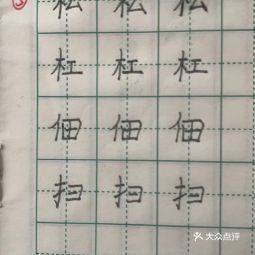 松 松 松
杠 杠 杠
佃 佃 佃
扫 扫 扫
大众点评